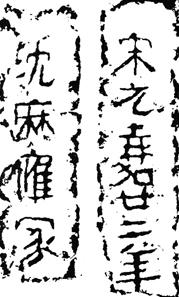 宋元嘉二年
沈麻㩁冢